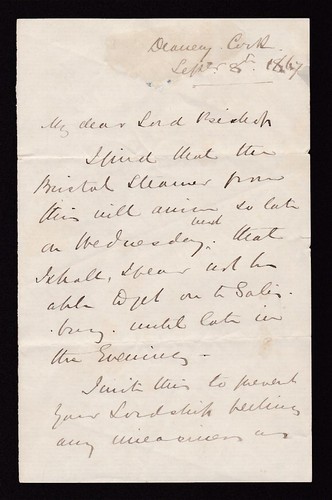 Deanery. Cork.
Septr. 8th. 1867
My dear Lord Bishop
I find that the
Bristol Steamer from
this will arrive so late
on Wednesday next that
I shall, I fear not be
able to get on to Salis-
bury. until late in
the Evening.
I write this to prevent
Your Lordship feeling
any uneasiness as